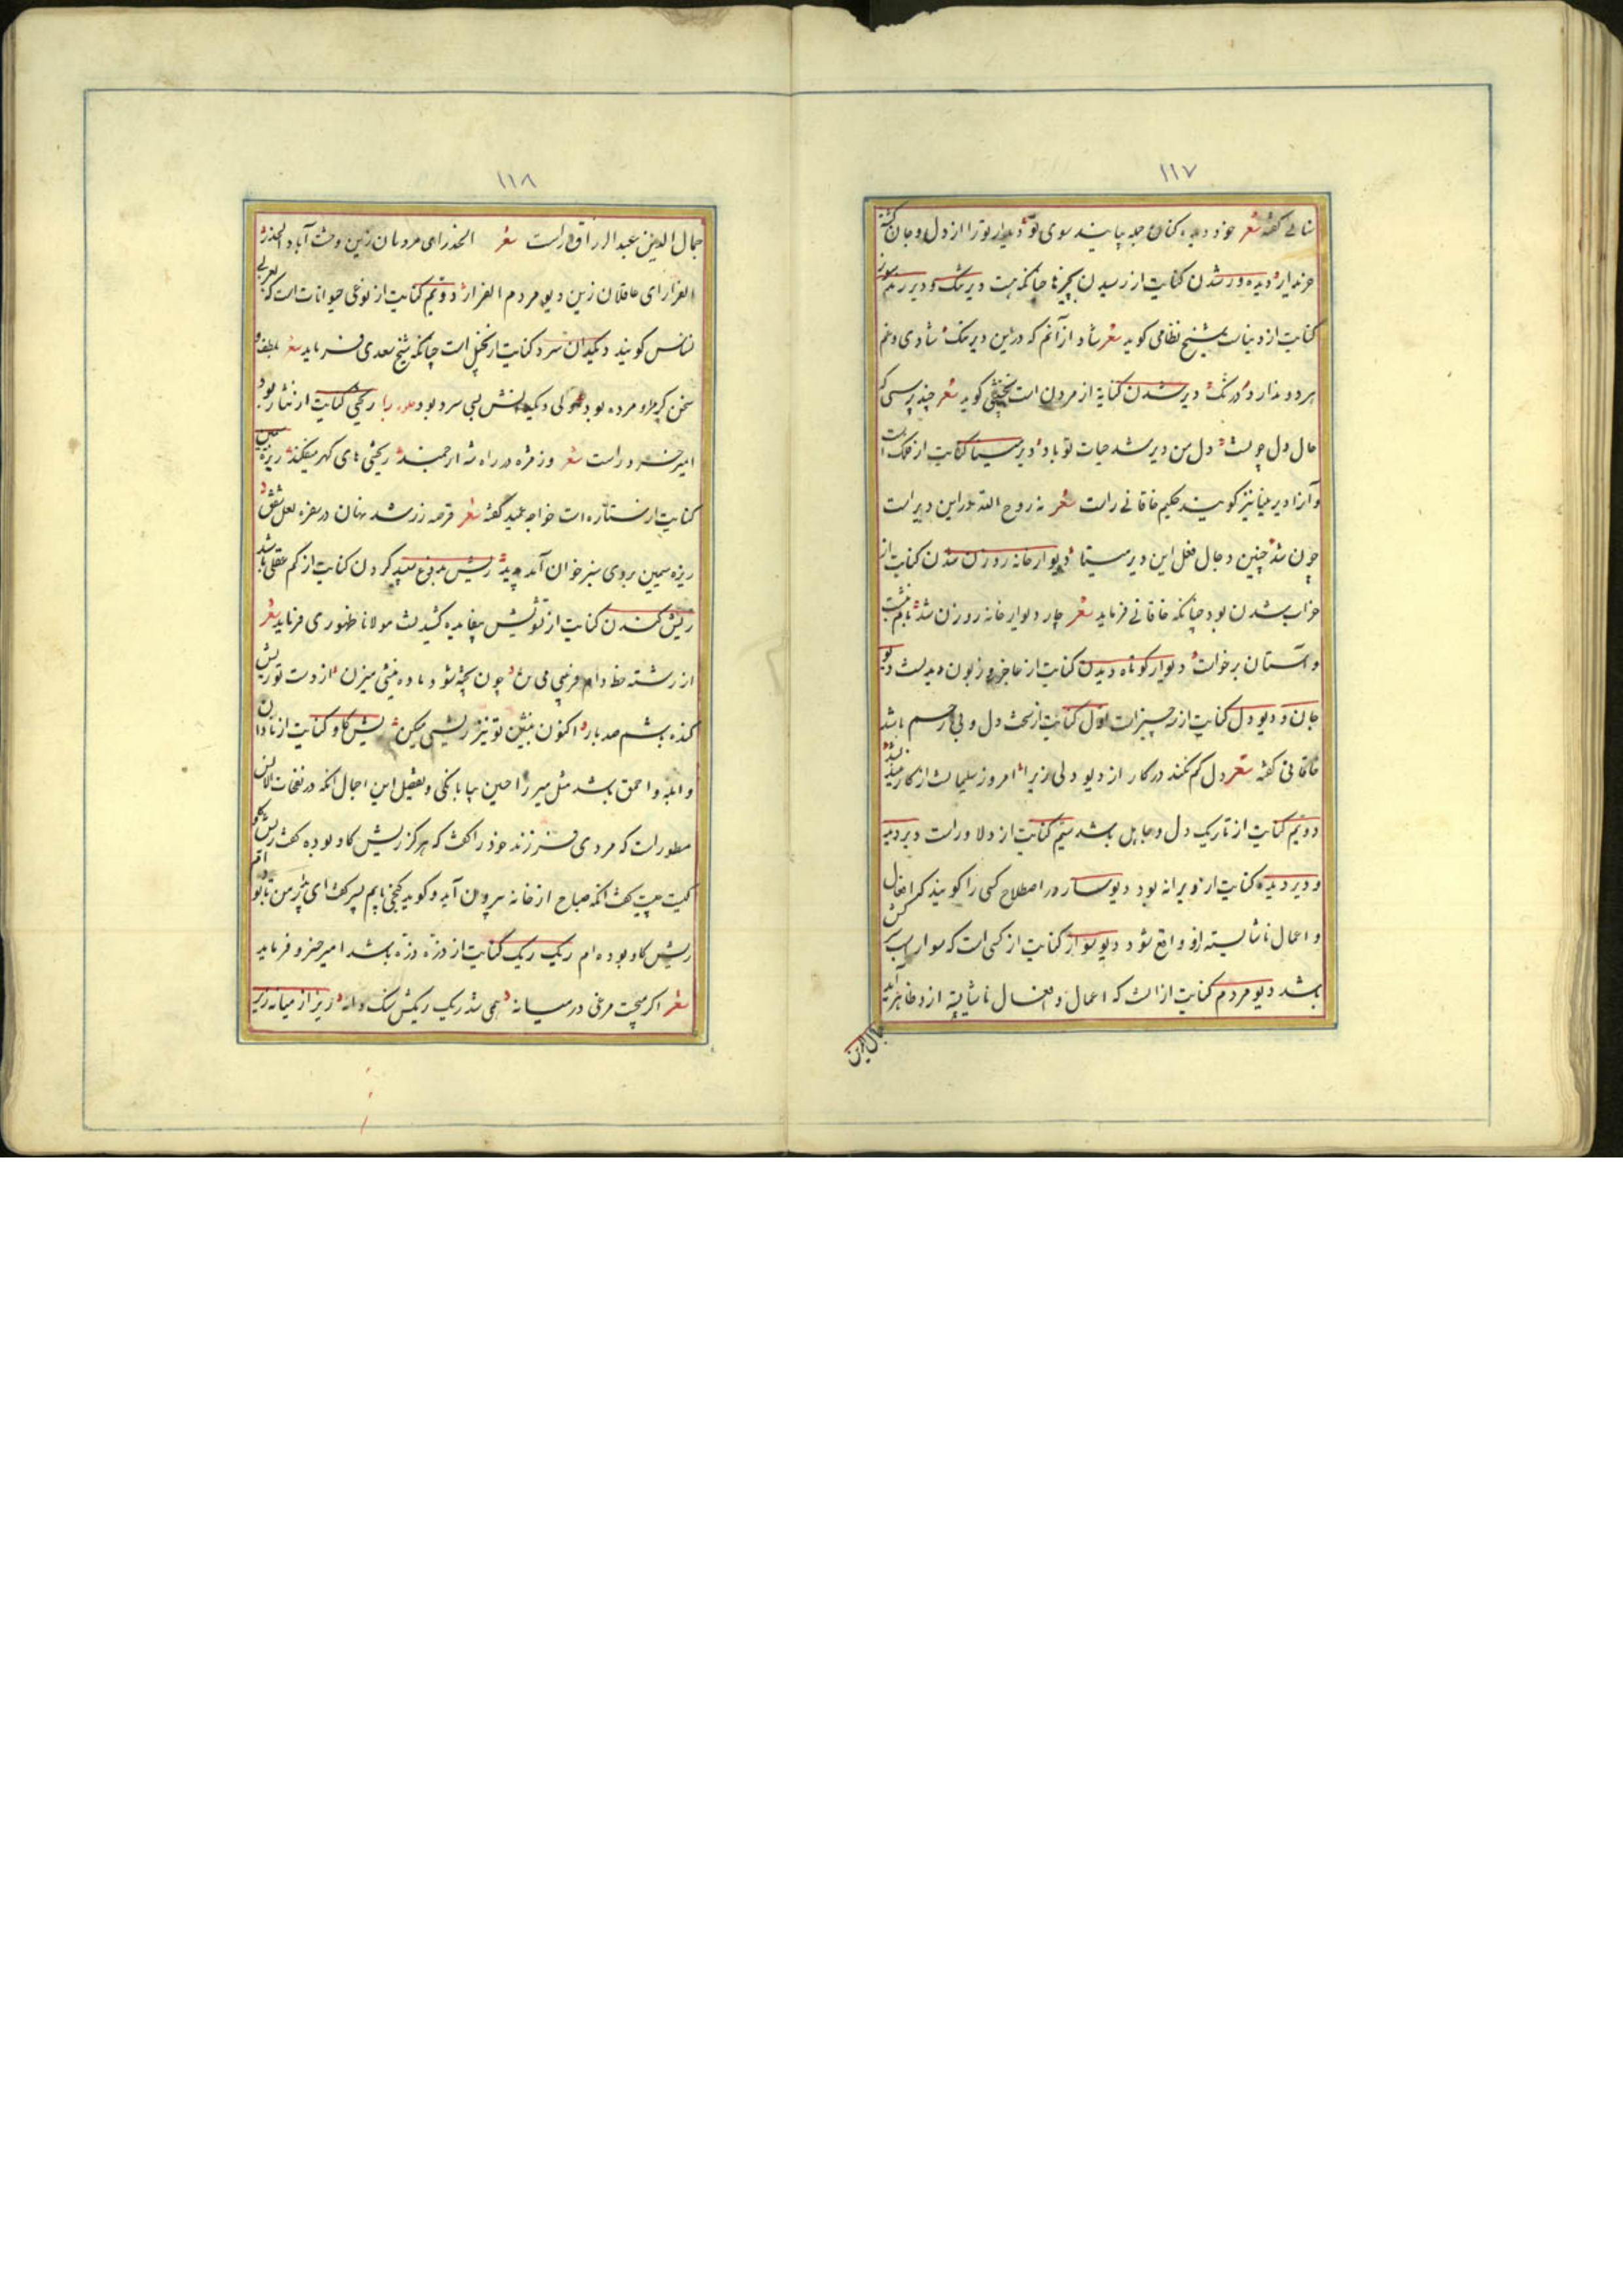 ۱۱۷
گفته شعر خود دیده کنان جمله بیایند سوی تو دیدار تو را از دل و جان گشته
خریدار دیده ور شدن کنایت از رسیدن بچیزها چنانکه هست دیر تنگ و دیر
کنایت از دنیاست شیخ نظامی کوید شعر شاد از آنم که درین دیر تنک شادی و غم
هر دو ندارد درنگ دیر شدن کنایة از مردن است کوید شعر چند پرسی که
حال دل چیست دل من دیر شد حیات تو باد دیر مینا کنایت از فلک است
و آنرا دیر مینا نیز کویند حکیم خاقانی راست شعر نه روح الله در این دیر است
چون شد چنین دجال فعل این دیر مینا دیوار خانه روزن شدن کنایت از
خراب شدن بود چنانکه خاقانی فرماید شعر چار دیوار خانه روزن شد بام بنشست
و آستان برخاست دیوار کوتاه دیدن کنایت از عاجز و زبون دیدنست دیو
جان و دیو دل کنایت از سه چیز است اول کنایت از سخت دل و بی رحم باشد
خاقانی گفته شعر دل کم نکند در کار از دیو دلی زیرا امروز سلیمانست از کار
دویم کنایت از تاریک دل و جاهل باشد سیم کنایت از دلاور است دیر دمیه
و دیر دیده کنایت از ویرانه بود دیوسار در اصطلاح کسی را کویند که افعال
و اعمال ناشایسته ازو واقع شود دیو سوار کنایت از کسی است که سوار اسب سرکش
باشد دیو مردم کنایت از انست که اعمال و افعال ناشایسته ازو ظاهر آید
جمال الدین
۱۱۸
جمال الدین عبد الرزاق راست شعر الحذر ای مردمان زین وحشت آباد الحذر
الفرار ای عاقلان زین دیو مردم الفرار دویم کنایت از نوعی حیوانات است که بعربی
نسناس کویند دیکدان سرد کنایت از بخیل است چنانکه شیخ سعدی فرماید شعر بلطف و
سخن کرم رو مرد بود ولی دیکدانش بسی سرد بود راء ریختی کنایت از نثار بود
امیر خسرو راست شعر وز مژه در راه شه ارجمند ریختی های کهر میفکند ریزه سیمین
کنایت از ستاره است خواجه عمید گفته شعر قرصه زر شد نهان در سفره لعل شفق
ریزه سیمین بروی سبز خوان آمد پدید ریش بدوغ سپید کردن کنایت از کم عقلی باشد
ریش کندن کنایت از تشویش بیفایده کشیدنست مولانا ظهوری فرماید شعر
از رشته خط دام فریبی می چون بچه شو و ماده میزن از دست تو ریش
کنده باشم صد بار اکنون بنشین تو نیز ریشی میکن ریش کاو کنایت از نادان
و ابله و احمق باشد مثل میرزا حسین بیابانکی و تفصیل این اجمال انکه در نفحات الانس
مسطور است که مردی فرزند خود را گفت که هرگز ریش کاو بوده گفت ریش گاو
کیست گفت انکه صباح از خانه بیرون آید و کوید کنجی یابم پسر گفت ای پدر من تا بوده ام
ریش کاو بوده ام ریک ریک کنایت از ذره ذره باشد امیر خسرو فرماید
شعر اکر پخت مرغی در میانه همی شد ریک ریکش سنک دانه زیر از میانه